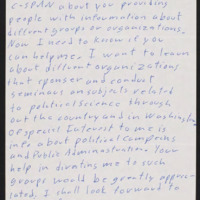 C-SPAN about you providing
people with information about
different groups or organizations.
Now I need to know if you
can help me. I want to learn
about different organizations
that sponser and conduct
seminars on subjats related
to political science through
out the country and in Washington
Of special Interest to me is
info about political Campeigns
and Public Administration. Your
help in divating me to such
groups would be greatly apprec-
iated. I shall look forward to